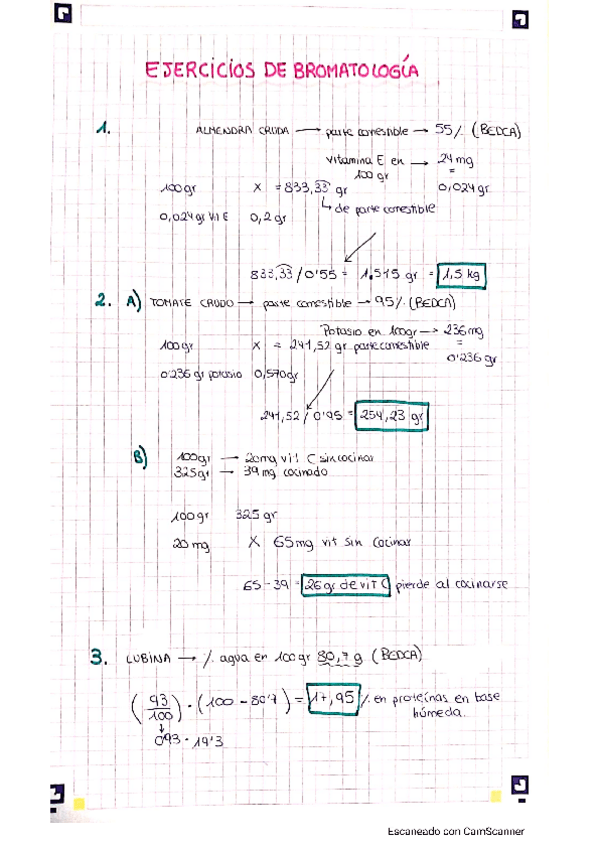 EJERCICIOS DE BROMATOLOGÍA
1. ALMENDRA CRUDA → parte comestible → 55% (BEDCA)
vitamina E en 100gr → 24 mg = 0,024 gr
100gr X = 833,33 gr
↳ de parte comestible
0,024 gr Vit E 0,2 gr
833,33 / 0'55 = 1.515 gr = 1,5 kg
2. A) TOMATE CRUDO → parte comestible → 95% (BEDCA)
Potasio en 100gr → 236 mg = 0'236 gr
100gr X = 241,52 gr parte comestible
0'236 gr potasio 0,570gr
241,52 / 0'95 = 254,23 gr
B) 100gr → 20mg vit C sin cocinar
325gr → 39 mg cocinado
100gr 325 gr
20mg X 65mg vit sin cocinar
65-39 = 26 gr de vit C pierde al cocinarse
3. LUBINA → % agua en 100gr 80,7 g (BEDCA)
(93/100) · (100 - 80'7) = 17,95 % en proteínas en base húmeda.
↓
0'93 · 19'3
Escaneado con CamScanner